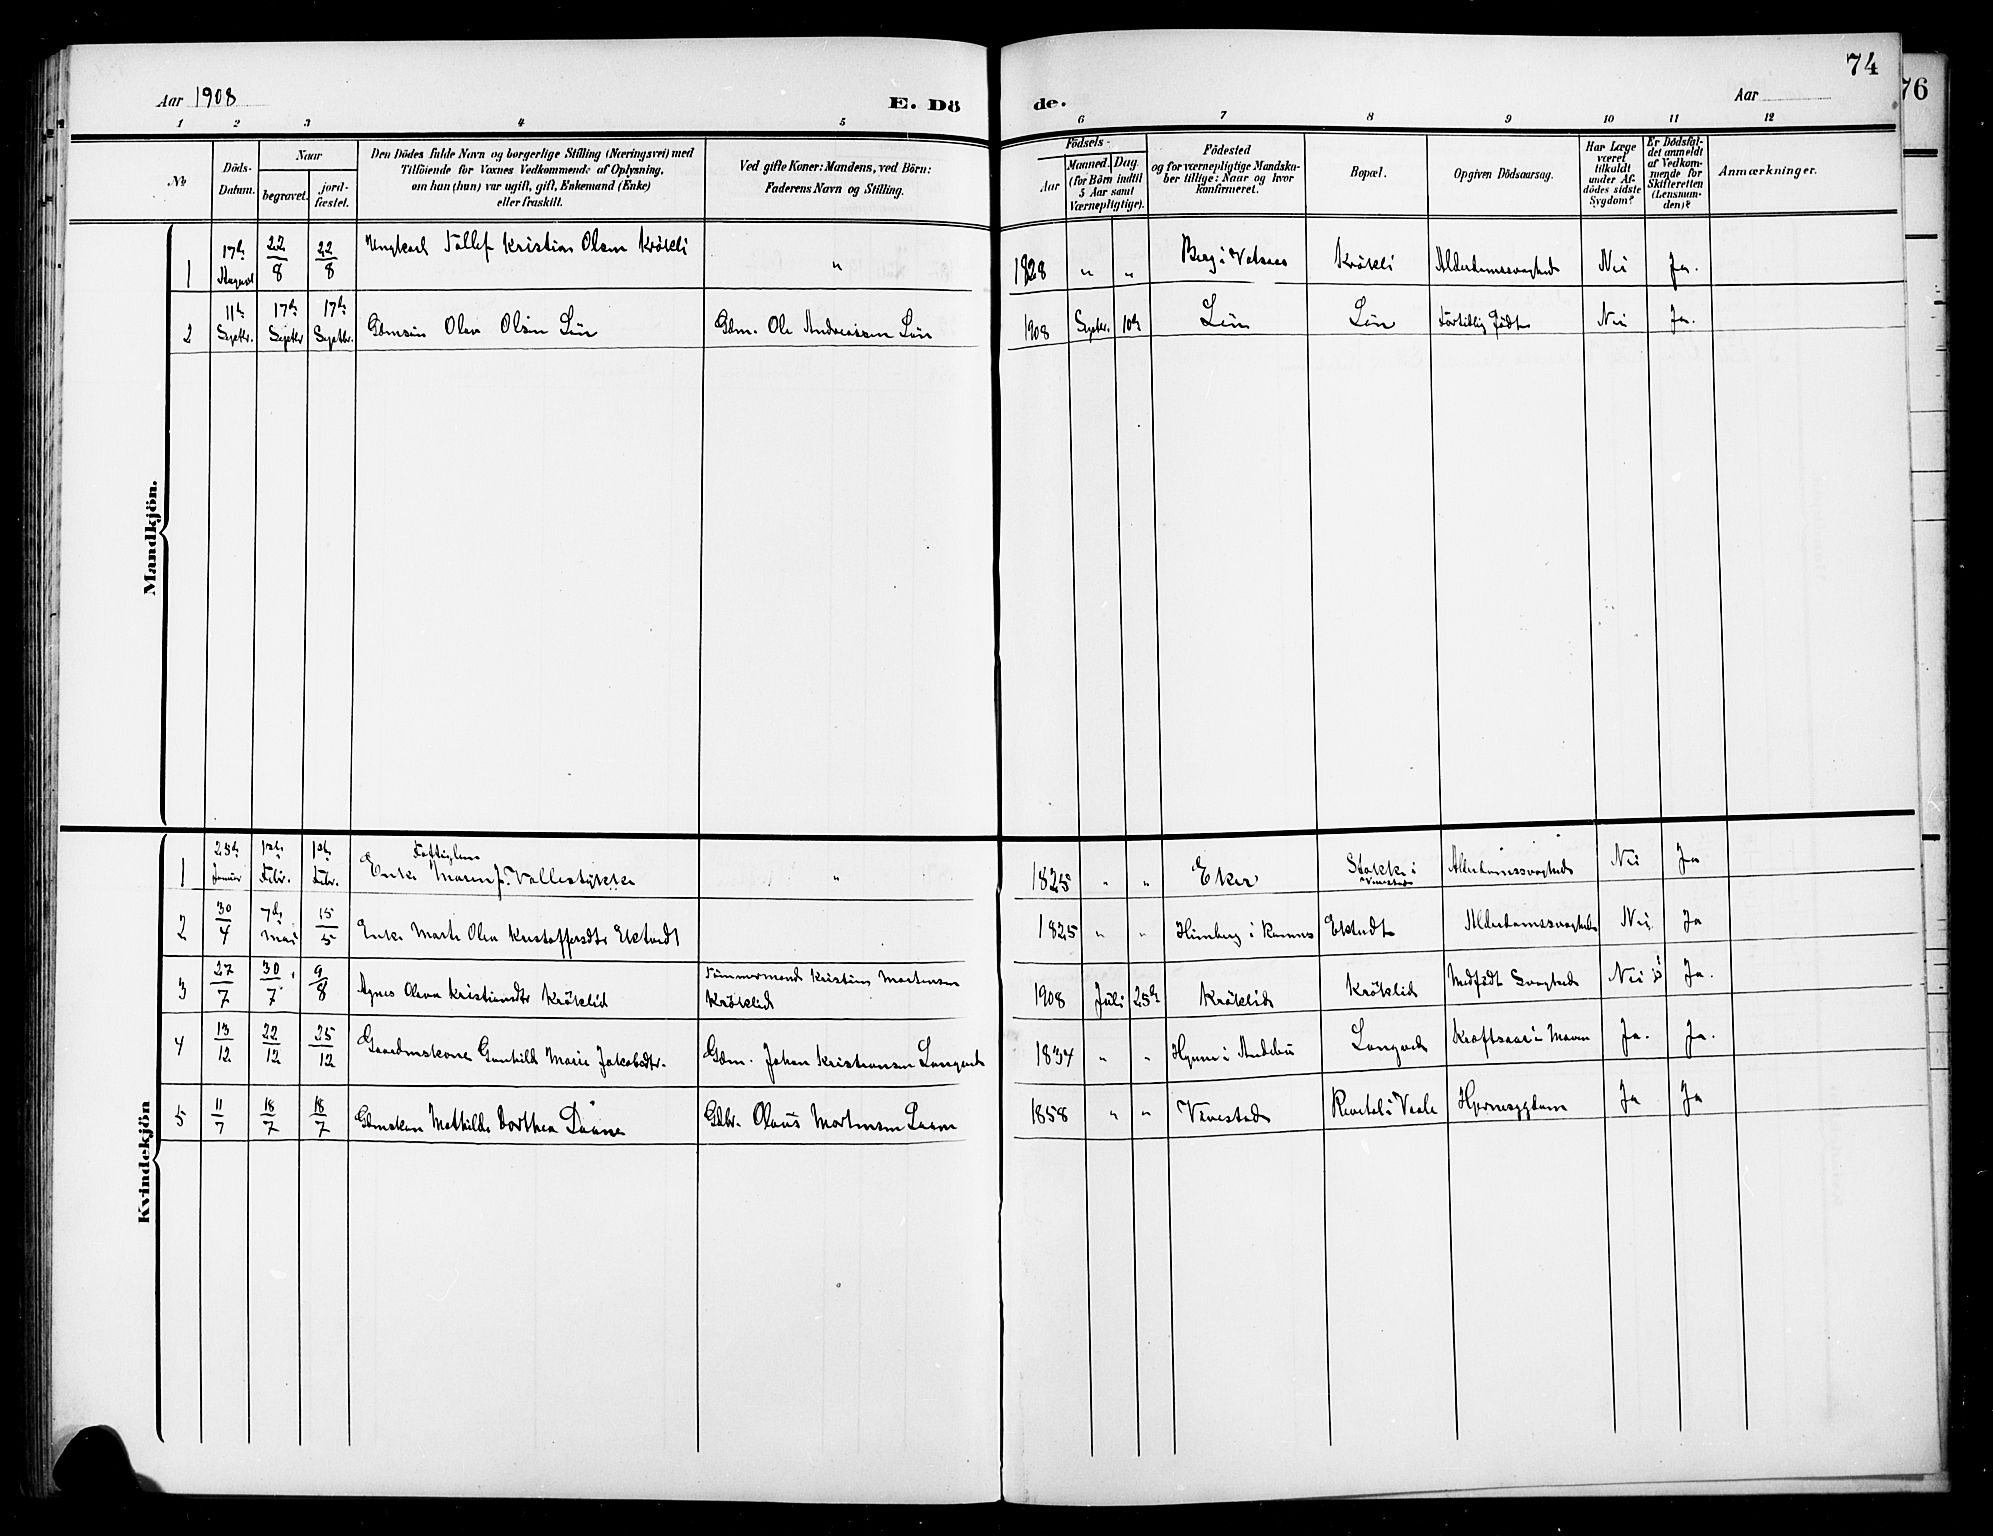 74
76
Aar 1908
E. Dö
de.
Aar
1 2 3 4 5 6 7 8 9 10 11 12
№
Döds-
Datum.
Naar
begravet.
jord-
fæstet.
Den Dödes fulde Navn og borgerlige Stilling (Næringsvei) med
Tilföiende for Voxnes Vedkommende af Oplysning,
om han (hun) var ugift, gift, Enkemand (Enke)
eller fraskilt.
Ved gifte Koner: Mandens, ved Börn:
Faderens Navn og Stilling.
Födsels-
Aar
Maaned. Dag.
(for Börn indtil
5 Aar samt
Værnepligtige).
Födested
og for værnepligtige Mandska-
ber tillige: Naar og hvor
konfirmeret.
Bopæl.
Opgiven Dödsaarsag.
Har Læge
været
tilkaldt
under Af-
dödes sidste
Sygdom?
Er Dödsfal-
det anmeldt
af Vedkom-
mende for
Skifteretten
(Lensman-
den)?
Anmærkninger.
Mandkjön.
1 17de August 22/8 22/8 Ungkarl Tollef Kristian Olsen Krökli " 1828 " " Berg i Krökli Alderdomssvaghed Nei Ja.
2 11te Septbr. 17de Septbr 17de Septbr. Gdmsön Olav Olsen Gdm. Ole Andreassen 1908 Septbr. 10de Fortidlig födt Nei Ja.
Kvindekjön
1 25de Januar 1ste Febr. 1ste Febr. Fattiglem
Enke Maren " 1825 " " Eker Stokke i
Vivestad Alderdomssvaghed Nei Ja
2 30/4 7de Mai 15/5 Enke Marte Olea Kristoffersdtr 1825 " " Himberg i Alderdomssvaghed Nei. Ja
3 27/7 30/7 9/8 Agnes Oleva Kristiansdtr Kröklid Tömmermand Kristian Mortensen
Kröklid 1908 Juli 25de Kröklid Kröklid Medfödt Svaghed Nei Ja.
4 13/12 22/12 25/12 Gaardmskone Gunhild Marie Jakobsdtr. Gdm. Johan Kristiansen Langved 1834 " " i Andebu Langved Kræftsaar i Maven Ja. Ja.
5 11/7 18/7 18/7 Gdmskone Mathilde Dorthea Gdbr. Olaus Mortensen 1858 " " Vivestad Revetal i Vaale Hjernesygdom Ja Ja